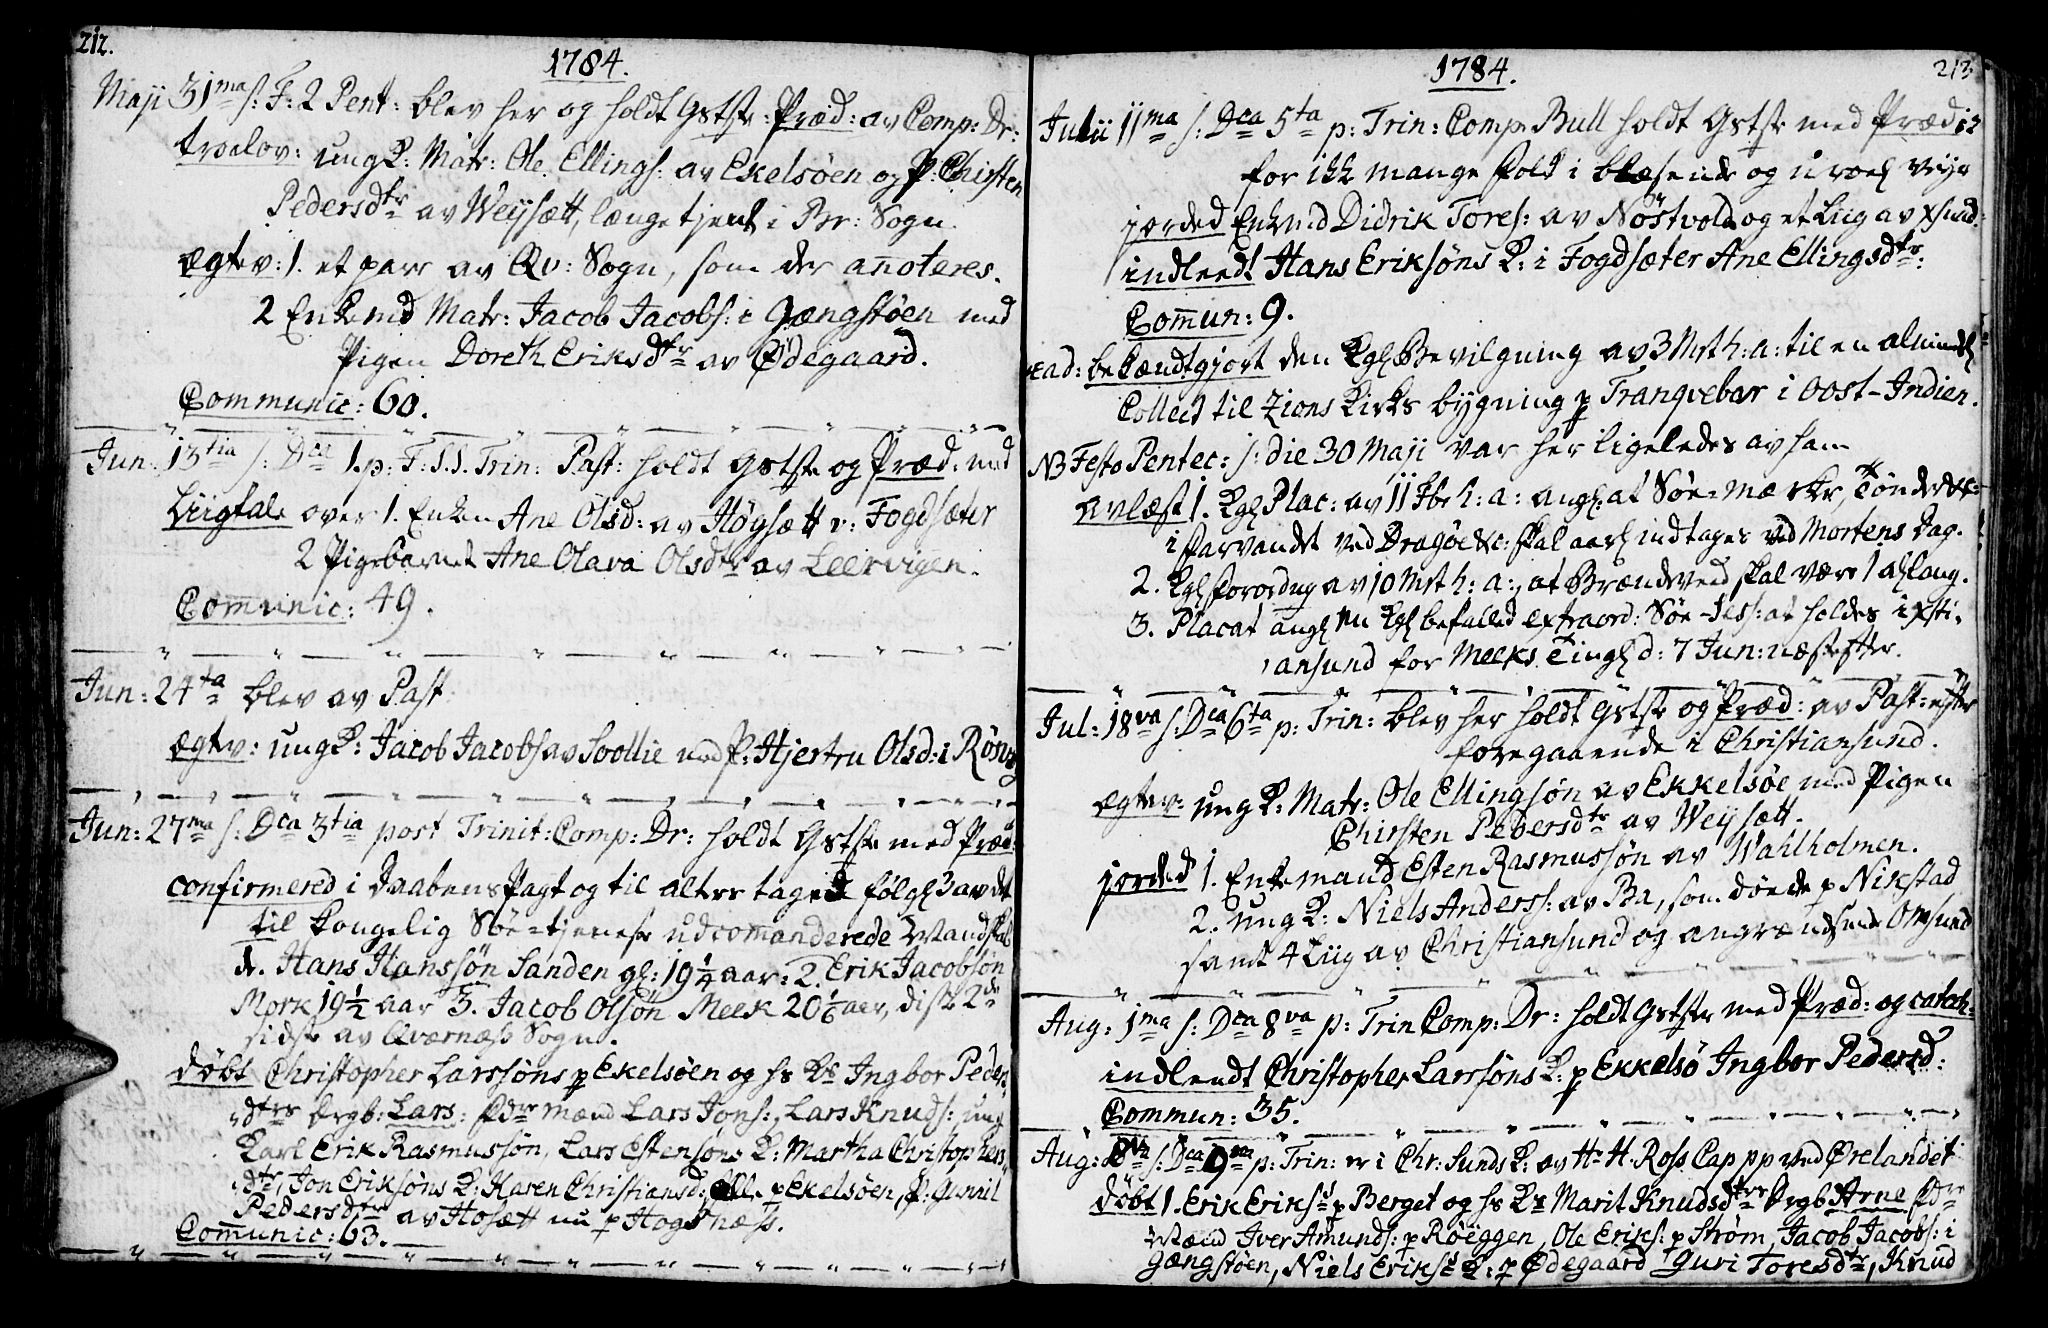 212.
1784.
Maji 31ma s: F: 2 Pent: blev her og holdt Gstste: Præd: av Comp: Dr:
troelov: ung K: Matr: Ole Ellings: av Ekelsøen og P: Chirsten
Pedersdtr av Weysætt, længe tjent i Br: Sogn.
ægtev: 1. et parr av Qv: Sogn, som der anoteres.
2 Enkemd Matr: Jacob Jacobs: i Gængstøen med
Pigen Doreth Eriksdtr av Ødegaard.
Communic: 60.
Jun: 13tia s: Dca 1. p: F: S.S. Trin: Past: holdt Gstste og Præd: med
Liigtale over 1. Enken Ane Olsd: av Høgsætt v: Fogdsæter
2 Pigebarnet Ane Olava Olsdtr av Leervigen.
Comunic: 49.
Jun: 24ta blev av Past
ægtv: ung K: Jacob Jacobs av Soollie med P: Hjertru Olsd: i Røsvog
Jun: 27ma s: Dca 3tia post Trinit: Comp: Dr: holdt Gstste med Præd:
confirmered i Daabens Pagt og til alters taged følgl 3 av det
til Kongelig Søe-tjeneste udcomanderede Mandskab
de. Hans Hanssøn Sanden gl: 19 1/4 aar: 2. Erik Jacobsøn
Mork 19 1/2 aar 3. Jacob Olsøn Meek 20 1/6 aar, diste 2de
sidste av Qværnæss Sogn.
døbt Christopher Larssøns p Ekelsøen og hs Ke Ingbor Peders
dtrs drgb: Lars: Fdrmænd Lars Jons:, Lars Knuds: ung
Karl Erik Rasmussøn, Lars Estensøns K: Martha Christophers
dtr, Jon Eriksøns K: Karen Christiansd: alle p Ekelsøen, P: Gunnil
Pedersdtr av Hosætt nu p Hogsnæss.
Comunic: 63.
213
1784.
Julii 11ma s: Dca 5ta p: Trin: Comp Bull holdt Gstste med Præd:
for ikk mange Folk i blæsende og uroel Veyr
jorded Enkmd Didrik Tores: av Nöstvold og et Liig av Xsund:
indleedt Hans Eriksøns K: i Fogdsæter Ane Ellingsdtr:
Comun: 9.
bekændtgjort den Kgl Bevilgning av 3 Mrt h: a: til en almindl
Collect til Zions Kirks bygning p Tranqvebar i Oost-Indien.
NB Festo Pentec: s: die 30 Maji var her ligeledes av ham
avlæst 1. Kgl Plac: av 11 Fbr h: a: angl: at Søe-mærker, Tønder &c:
i Farvandet ved Dragøe &c: skal aarl indtages ved Mortens Dag.
2. Kgl Forordng av 10 Mrt h: a:, at Brændeved skal være 1 al lang.
3. Placat angl en Kgl befalled extraord: Søe-Sess: at holdes i Xsti-
ansund for Meeks Tingl d: 7 Jun: næstefter.
Jul: 18va s: Dca 6ta p: Trin: blev her holdt Gstste og Præd: av Past: efter
foregaaende i Christiansund.
ægtev: ung K: Matr: Ole Ellingsøn av Ekkelsøe med Pigen
Chirsten Pedersdtr av Weysætt.
jorded 1. Enkemand Esten Rasmussøn av Wahlholmen.
2. ung K: Niels Anderss: av Ba, som døede p Nirstad
samt 4 Liig av Christiansund og angrændsende Omsund
Aug: 1ma s: Dca 8va p: Trin Comp: Dr: holdt Gstste med Præd: og catech:
indleedt Christopher Larssøns K: p Ekkelsö Ingbor Pedersd:
Commun: 35.
Aug: 8va s: Dca 9na p: Trin: er i Chr: Sunds K: av Hr H. Ross Cap pp ved Ørelandet
døbt 1. Erik Eriks: p Berget og hs Ke Marit Knudsdtrs drgb: Arne Fdr
Mænd Iver Amunds: p Røeggen, Ole Eriks: p Strøm, Jacob Jacobs: i
Gængstøen, Niels Eriks: K: p Ødegaard Guri Toresdtr, Knud